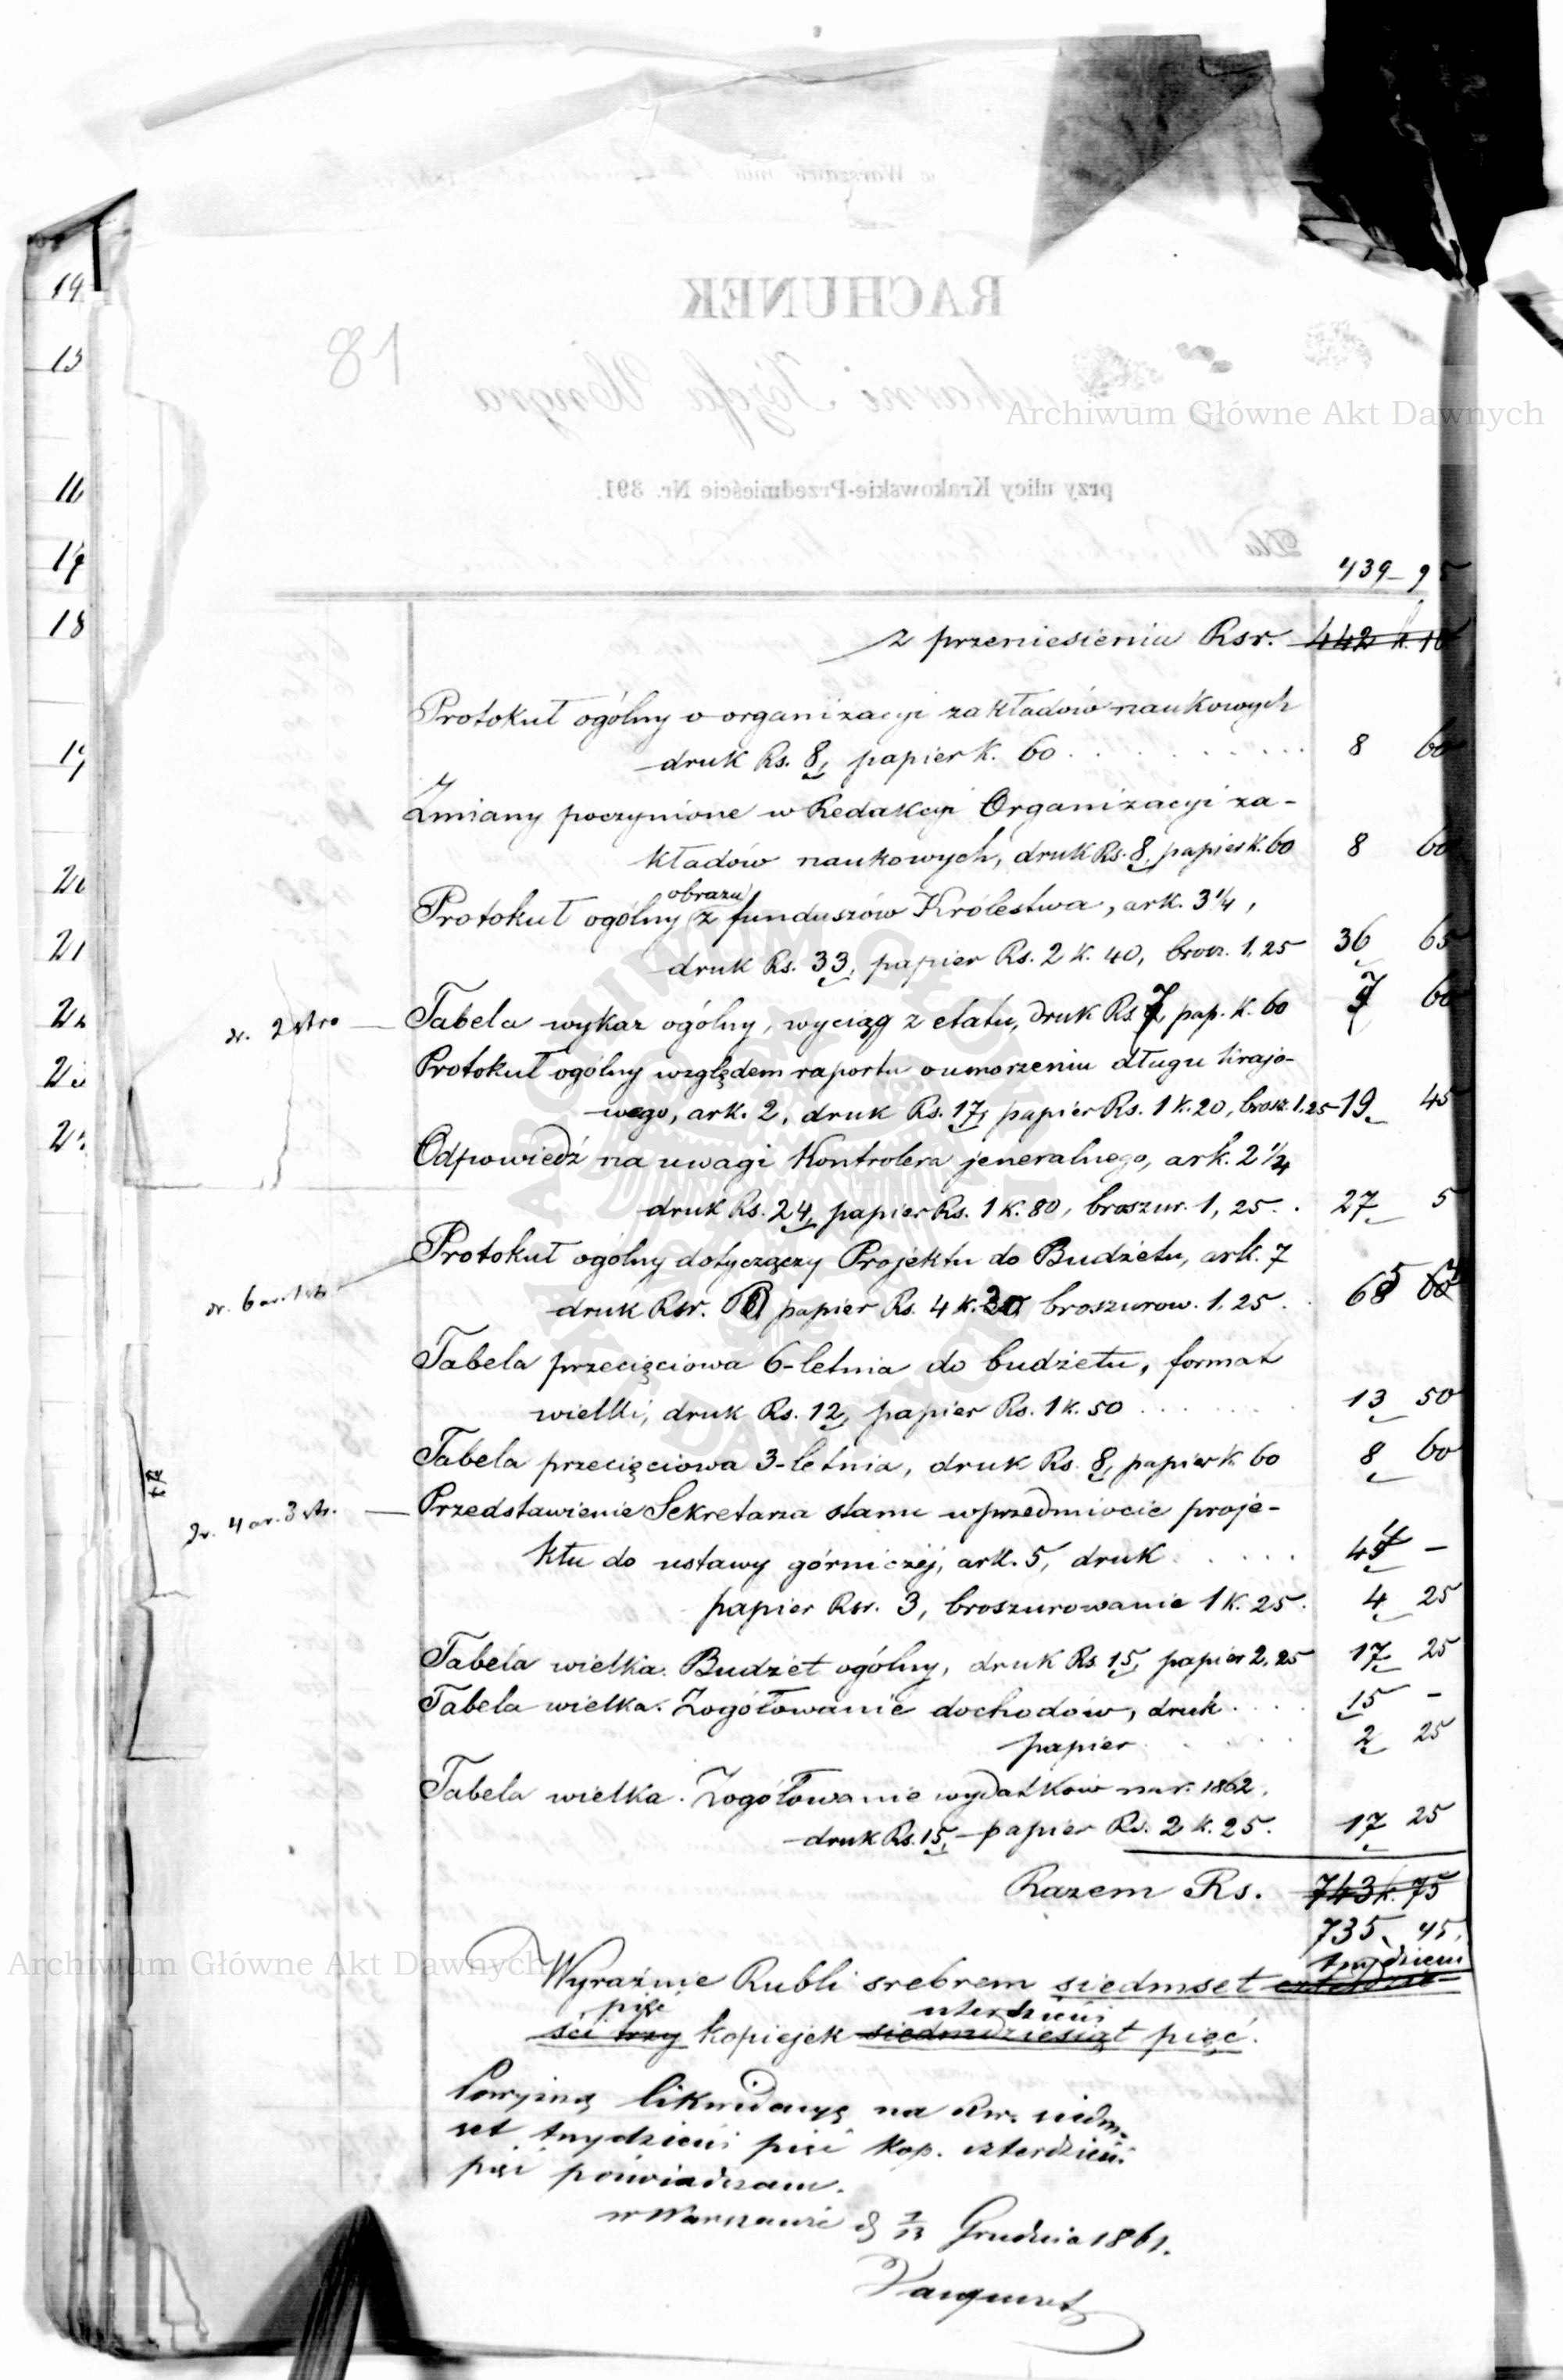 81
439 – 95
z przeniesienia Rsr. 442 k. 10
Protokuł ogólny o organizacyi zakładów naukowych
druk Rs. 8, papier K. 60 . . . . . . . . 8 60
Zmiany poczynione w Redakcyi Organizacyi za-
kładów naukowych, druk Rs. 8, papier K. 60 8 60
obrazu
Protokuł ogólny z funduszów Królestwa, ark. 3 1/4,
druk Rs. 33, papier Rs. 2 K. 40, brosz. 1,25 36 65
dr. 2 stro — Tabela wykaz ogólny, wyciąg z etatu, druk Rs. 7, pap. K. 60 7 60
Protokuł ogólny względem raportu o umorzeniu długu krajo-
wego, ark. 2, druk Rs. 17, papier Rs. 1 K. 20, brosz. 1,25 19 45
Odpowiedź na uwagi Kontrolera jeneralnego, ark. 2 1/4
druk Rs. 24, papier Rs. 1 K. 80, broszur. 1,25 . . 27 5
Protokuł ogólny dotyczący Projektu do Budżetu, ark. 7
druk Rsr. papier Rs. 4 K. broszurow. 1,25 . . 65
Tabela przecięciowa 6-letnia do budżetu, format
wielki, druk Rs. 12, papier Rs. 1 K. 50 . . . . . . 13 50
Tabela przecięciowa 3-letnia, druk Rs. 8, papier K. 60 8 60
dr. 4 ar. 3 str. — Przedstawienie Sekretarza stanu w przedmiocie proje-
ktu do ustawy górniczéj, ark. 5, druk . . . . . 44 –
papier Rsr. 3, broszurowanie 1 K. 25 . 4 25
Tabela wielka. Budżet ogólny, druk Rs. 15, papier 2,25 17 25
Tabela wielka. Zogółowanie dochodów, druk . . . . 15 –
papier . . . . . . 2 25
Tabela wielka. Zogółowanie wydatków na r. 1862,
druk Rs. 15, papier Rs. 2 K. 25. 17 25
Razem Rs. 743 k. 75
735, 45,
trzydzieści
Wyraźnie Rubli srebrem siedmset czterdzie-
pięć czterdzieści
ści trzy kopiejek siedmdziesiąt pięć.
Powyższą likwidacyę na Rsr. siedm-
set trzydzieści pięć kop. czterdzieści
pięć poświadczam.
w Warszawie d 1/13 Grudnia 1861.
RACHUNEK
Józefa Ungra
przy ulicy Krakowskie-Przedmieście Nr. 391.
Dla
14
15
16
17
18
19
20
21
22
23
Archiwum Główne Akt Dawnych
Archiwum Główne Akt Dawnych
ARCHIWUM GŁÓWNE AKT DAWNYCH